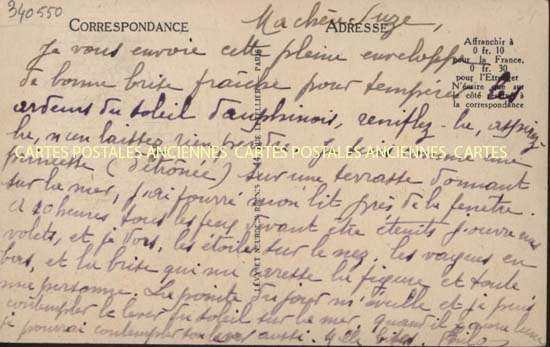 340550
CORRESPONDANCE
ADRESSE
Ma chère Suze,
Affranchir à
0 fr. 10
pour la France,
0 fr. 30
pour l'Etranger
N'écrire que sur
le côté
la correspondance
Je vous envoie cette pleine enveloppe
de bonne brise fraîche pour tempérer les
ardeurs du soleil dauphinois, reniflez-la, aspirez-
la, n'en laissez rien perdre. Je
princesse (détrônée) sur une terrasse donnant
sur la mer, j'ai fourré mon lit près de la fenêtre.
A 10 heures tous les feux devant être éteints j'ouvre mes
volets, et je dors, les étoiles sur le nez, les vagues en
bas, et la brise qui me caresse la figure et toute
ma personne. La pointe du jour m'éveille et je puis
contempler le lever du soleil sur la mer, quand il
je pourrai contempler aussi.
CARTES POSTALES ANCIENNES CARTES POSTALES ANCIENNES CARTES POSTALES ANCIENNES
LEVY ET NEURDEIN REUNIS
PARIS